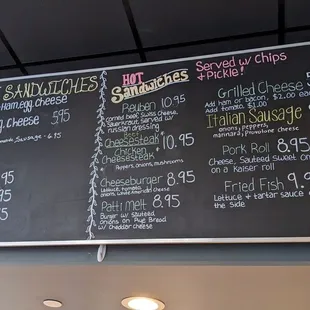 SANDWICHES
Ham, egg, cheese
Cheese 5.95
Sausage - 6.95
.95
.95
95
HOT
Sandwiches
Served w/ Chips
+ Pickle!
Reuben 10.95
corned beef, Swiss cheese,
Sauerkraut served w/
russian dressing
Cheesesteak
Chicken 10.95
Cheesesteak
+ Peppers, onions, mushrooms
Cheeseburger 8.95
Lettuce, tomato,
onions, white American cheese
Patti Melt 8.95
Burger w/ sauteed
onions on Rye Bread
w/ cheddar cheese
Grilled Cheese 5
Add ham or bacon, $2.00
Add tomato, $1.00
Italian Sausage
onions, peppers,
marinara, Provolone cheese
Pork Roll 8.95
Cheese, Sauteed sweet on
on a Kaiser roll
Fried Fish 9.9
Lettuce + tartar sauce
the Side